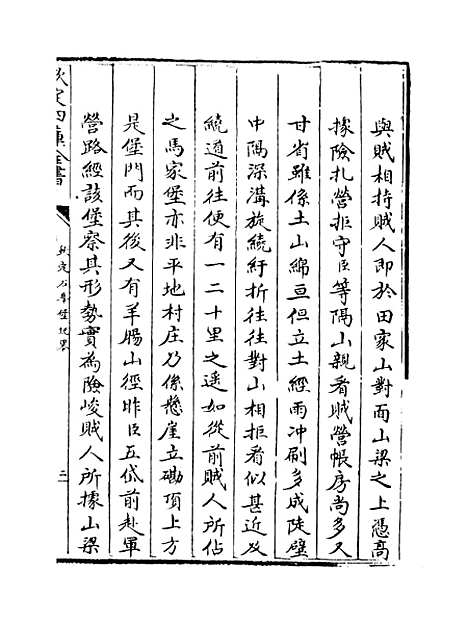 與賊相持賊人即於田家山對面山梁之上憑高
據險扎營拒守臣等隔山親看賊營帳房尚多又
甘省雖係土山綿亘但立土經雨冲刷多成陡壁
中隔深溝旋繞紆折往往對山相拒看似甚近及
繞道前往便有一二十里之遥如從前賊人所佔
之馬家堡亦非平地村庄乃係懸崖立磡頂上方
是堡門而其後又有羊腸山徑昨臣五岱前赴軍
營路經該堡察其形勢實為險峻賊人所據山梁
欽定四庫全書
欽定石峯堡紀畧
三